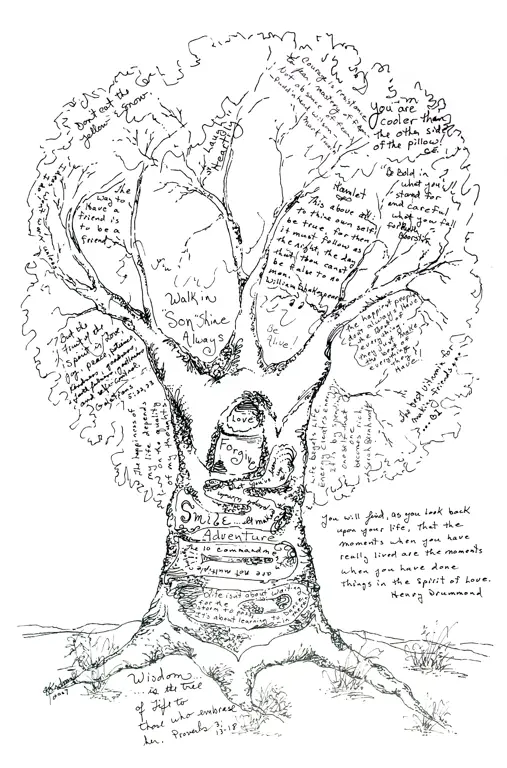 Don't eat the
yellow snow.
Laugh
Heartily
Courage is resistance
to fear, mastery of fear
Not absence of fear
Mark Twain
You are
cooler than
the other side
of the pillow!
Be Bold in
what you
stand for
and careful
what you fall
for
The
way to
have a
friend is
to be a
friend
Hamlet
This above all:
to thine own self
be true, for then
it must follow as
the night, the day
that thou canst
be false to no
man.
William Shakespeare
Walk in
Son Shine
Always
Be
Alive!
But the
fruit of the
Spirit is love
joy, peace, patience
kindness, goodness
faithfulness, gentleness
and self-control
Galatians
5:22,23
The happiest people
don't always
have the best of
everything
they just make
the best of
everything they
have!
The happiness of
my life depends
on the quality
of my thoughts
Life begets life
Energy creates energy
It is by
oneself that
becomes rich
Sarah Bernhardt
Love
Forgive
Smile
Adventure
The 10 commandm
are not multiple
Life isn't about waiting
for the
storm to pass
it's about learning to
You will find, as you look back
upon your life, that the
moments when you have
really lived are the moments
when you have done
things in the spirit of Love.
Henry Drummond
Wisdom
... is the tree
of life to
those who embrace
her. Proverbs 3:
13-18